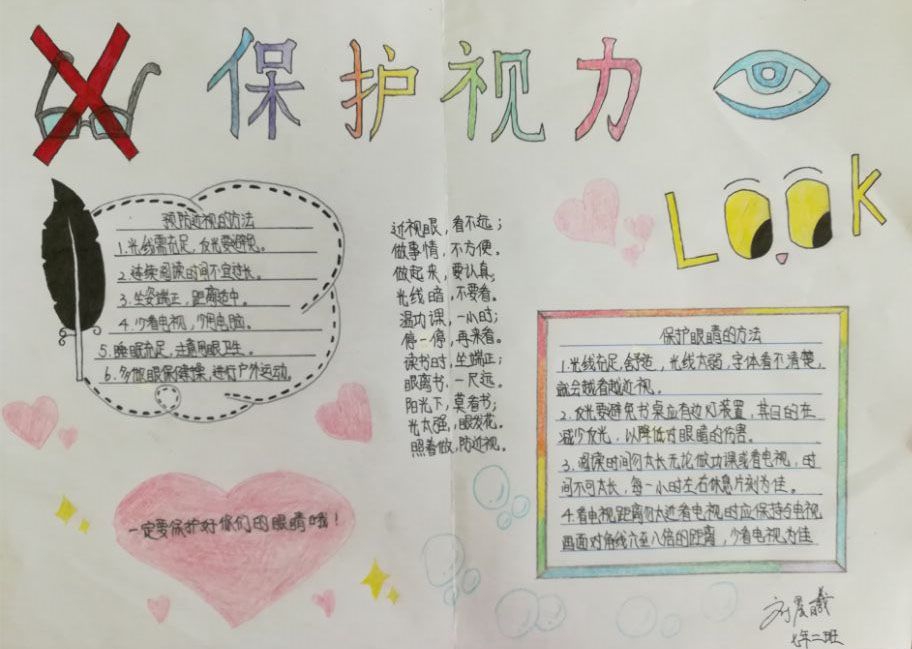 保护视力
LOOK
预防近视的方法
1.光线需充足,反光要避免。
2.连续阅读时间不宜过长。
3.坐姿端正,距离适中。
4.少看电视,少用电脑。
5.睡眠充足,注意用眼卫生。
6.多做眼保健操,进行户外运动。
近视眼,看不远;
做事情,不方便。
做起来,要认真,
光线暗,不要看。
温功课,一小时;
停一停,再来看。
读书时,坐端正;
眼离书,一尺远。
阳光下,莫看书;
光太强,眼发花。
照着做,防近视。
保护眼睛的方法
1.光线充足,舒适,光线太弱,字体看不清楚,
就会越看越近视。
2.反光要避免书桌应有边灯装置,其目的在
减少反光,以降低对眼睛的伤害。
3.阅读时间勿太长无论做功课或看电视,时
间不可太长,每一小时左右休息片刻为佳。
4.看电视距离勿太近看电视时应保持与电视
画面对角线六至八倍的距离,少看电视为佳
一定要保护好你们的眼睛哦!
刘晨曦
七年二班